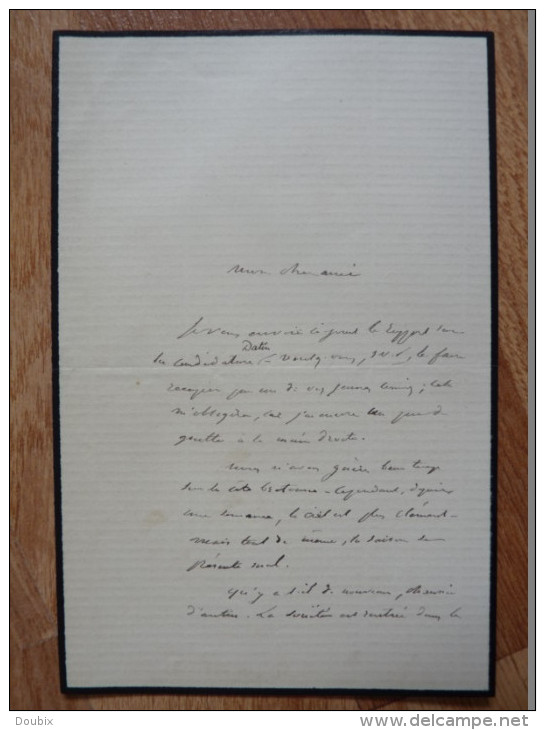 mon cher ami
Je vous envoie ci joint le rapport sur
Datin
la candidature — Voulez-vous, s. v. p., le faire
recopier par un de vos jeunes commis; cela
m'obligera, car j'ai encore un peu de
goutte à la main droite.
nous n'avons guère beau temps
sur la côte bretonne — Cependant, depuis
une semaine, le ciel est plus clément —
mais tout de même, la saison se
présente mal.
qu'y a-t-il de nouveau, chemin
d'autin. La Société est rentrée dans le
Doubix
www.delcampe.net